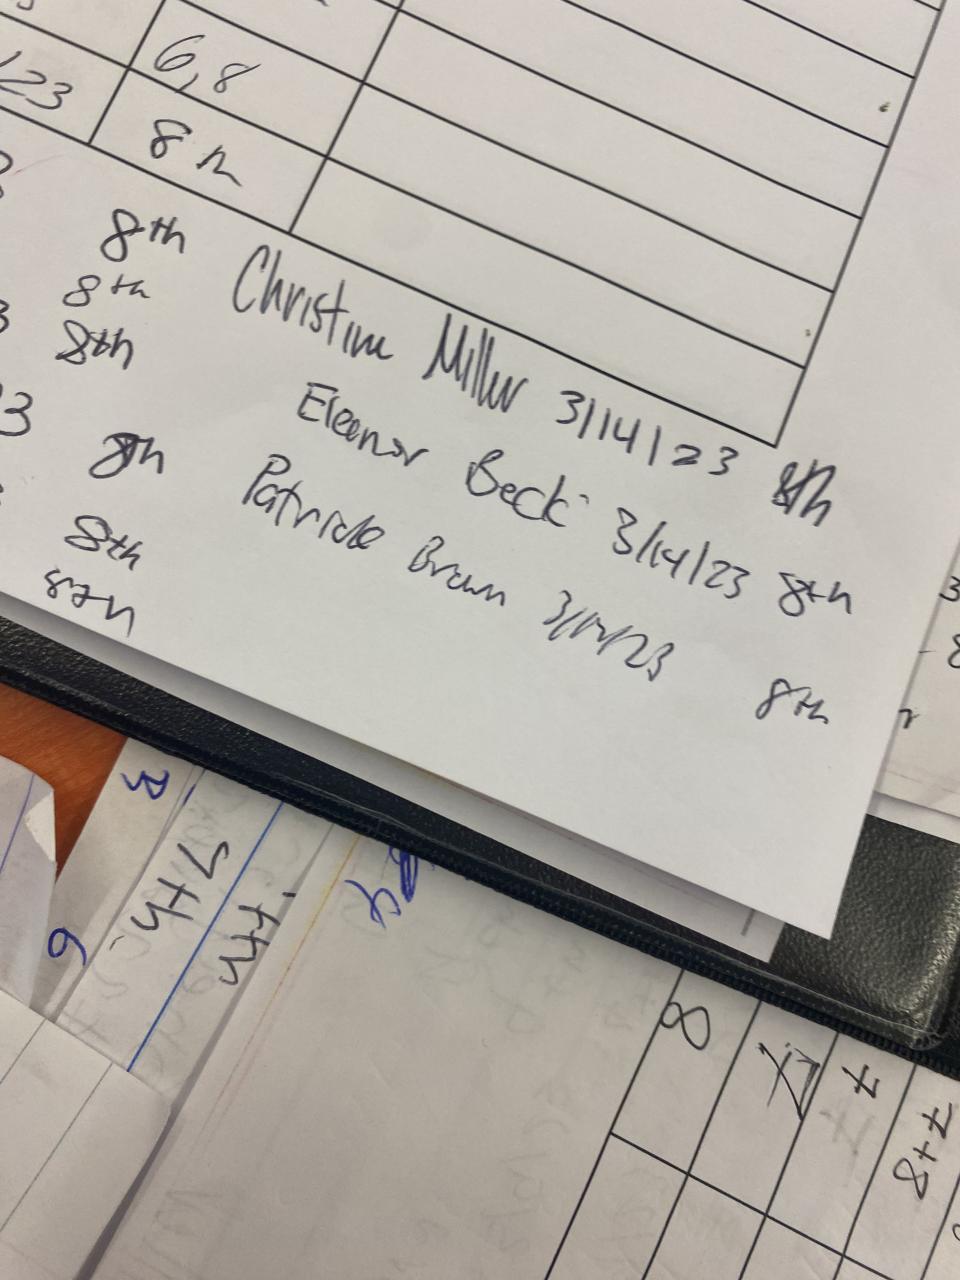 6,8
/23
8th
8th Christine Miller 3/14/23 8th
8th
8th Eleanor Beck 3/14/23 8th
3
8th Patrick Brown 3/14/23 8th
8th
8th
3
7th
6
8
7
7+8